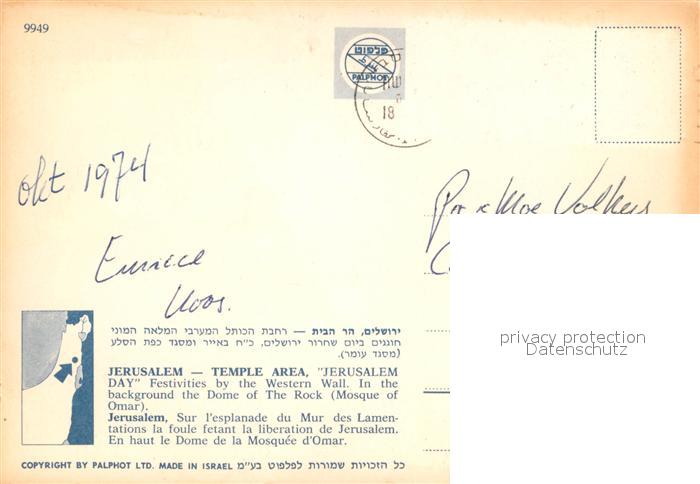 9949
פלפוט
PALPHOT
18
okt 1974
Volkers
privacy protection
Datenschutz
Koos.
ירושלים, הר הבית — רחבת הכותל המערבי המלאה המוני
חוגגים ביום שחרור ירושלים, כ״ח באייר ומסגד כפת הסלע
(מסגד עומר).
JERUSALEM — TEMPLE AREA, "JERUSALEM
DAY" Festivities by the Western Wall. In the
background the Dome of The Rock (Mosque of
Omar).
Jerusalem, Sur l'esplanade du Mur des Lamen-
tations la foule fetant la liberation de Jerusalem.
En haut le Dome de la Mosquée d'Omar.
COPYRIGHT BY PALPHOT LTD. MADE IN ISRAEL כל הזכויות שמורות לפלפוט בע״מ